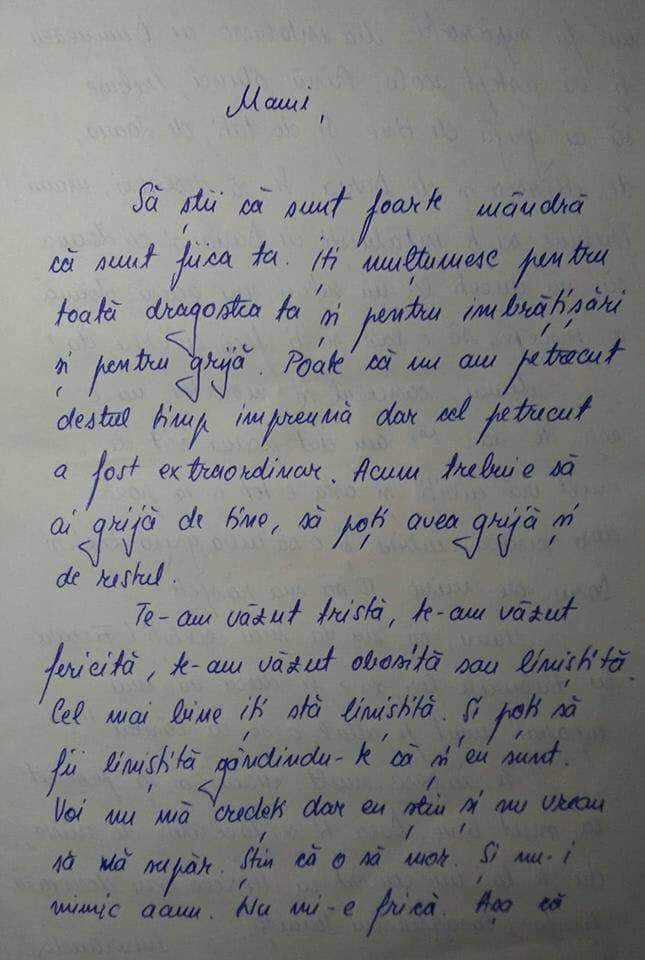 Mami,
Să știi că sunt foarte mândră
că sunt fiica ta. Iți mulțumesc pentru
toată dragostea ta și pentru imbrățișări
și pentru grijă. Poate că nu am petrecut
destul timp impreună dar cel petrecut
a fost extraordinar. Acum trebuie să
ai grijă de tine, să poți avea grijă și
de restul.
Te-am văzut tristă, te-am văzut
fericită, te-am văzut obosită sau liniștită.
Cel mai bine iți stă liniștită. Și poți să
fii liniștită gândindu-te că și eu sunt.
Voi nu mă credeți dar eu știu și nu vreau
să mă supăr. Știu că o să mor. Și nu-i
nimic aamu. Nu mi-e frică. Așa că